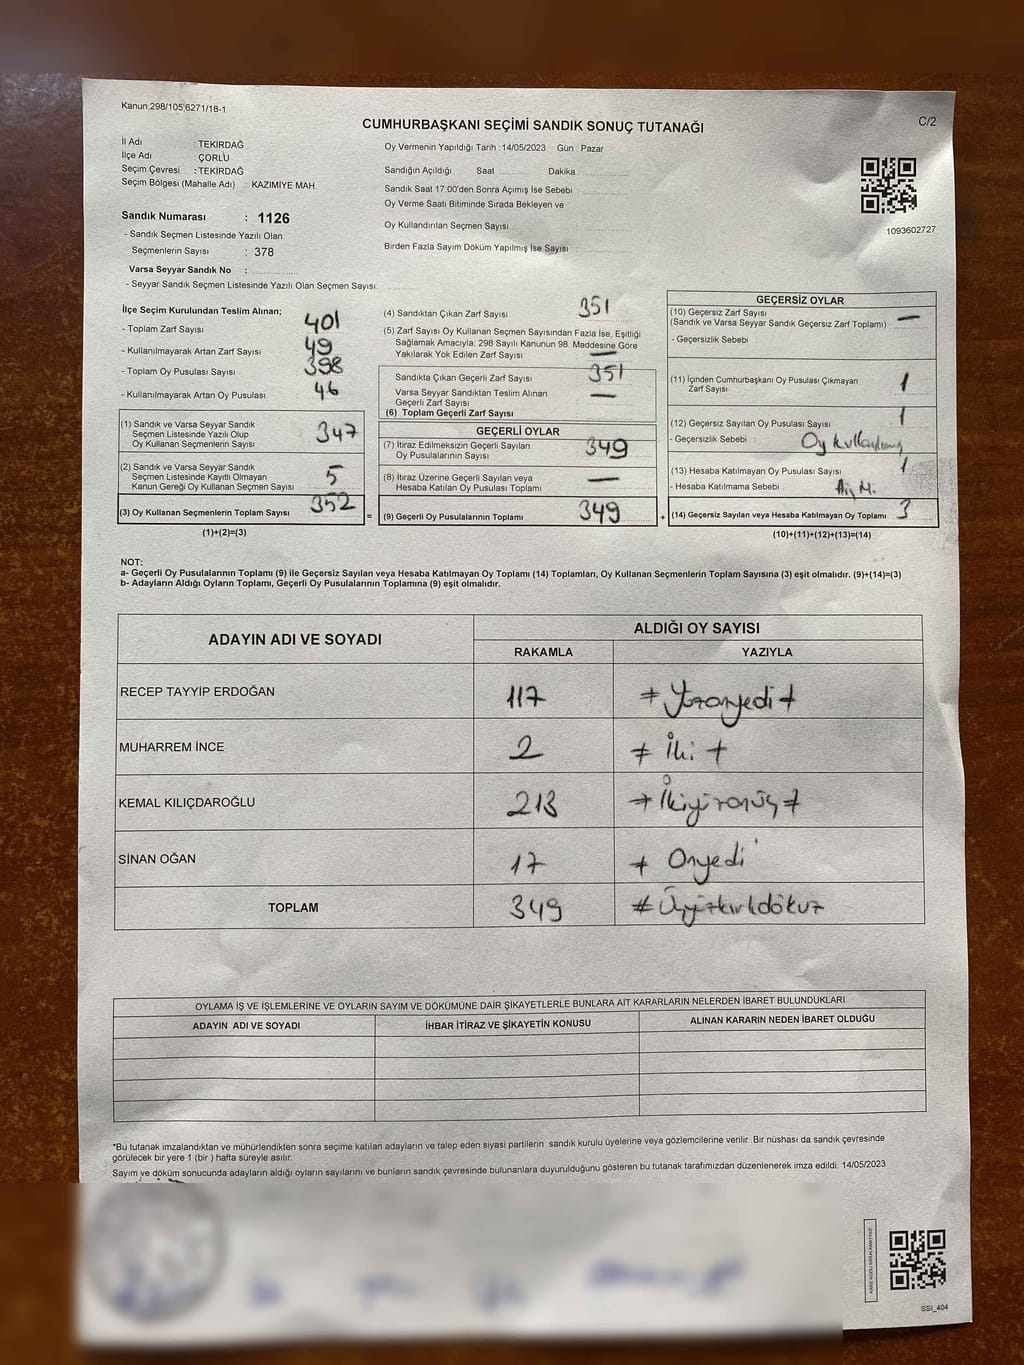 Kanun:298/105;6271/18-1
C/2
CUMHURBAŞKANI SEÇİMİ SANDIK SONUÇ TUTANAĞI
İl Adı : TEKİRDAĞ
İlçe Adı : ÇORLU
Seçim Çevresi : TEKİRDAĞ
Seçim Bölgesi (Mahalle Adı) : KAZIMİYE MAH.
Sandık Numarası : 1126
- Sandık Seçmen Listesinde Yazılı Olan
Seçmenlerin Sayısı : 378
Varsa Seyyar Sandık No :
- Seyyar Sandık Seçmen Listesinde Yazılı Olan Seçmen Sayısı:
Oy Vermenin Yapıldığı Tarih : 14/05/2023 Gün : Pazar
Sandığın Açıldığı Saat Dakika
Sandık Saat 17:00'den Sonra Açımış İse Sebebi :
Oy Verme Saati Bitiminde Sırada Bekleyen ve
Oy Kullandırılan Seçmen Sayısı :
Birden Fazla Sayım Döküm Yapılmış İse Sayısı :
1093602727
İlçe Seçim Kurulundan Teslim Alınan;
- Toplam Zarf Sayısı : 401
- Kullanılmayarak Artan Zarf Sayısı : 49
- Toplam Oy Pusulası Sayısı : 398
- Kullanılmayarak Artan Oy Pusulası : 46
(1) Sandık ve Varsa Seyyar Sandık
Seçmen Listesinde Yazılı Olup
Oy Kullanan Seçmenlerin Sayısı 347
(2) Sandık ve Varsa Seyyar Sandık
Seçmen Listesinde Kayıtlı Olmayan
Kanun Gereği Oy Kullanan Seçmen Sayısı 5
(3) Oy Kullanan Seçmenlerin Toplam Sayısı 352
(1)+(2)=(3)
(4) Sandıktan Çıkan Zarf Sayısı 351
(5) Zarf Sayısı Oy Kullanan Seçmen Sayısından Fazla İse, Eşitliği
Sağlamak Amacıyla; 298 Sayılı Kanunun 98. Maddesine Göre
Yakılarak Yok Edilen Zarf Sayısı —
Sandıkta Çıkan Geçerli Zarf Sayısı 351
Varsa Seyyar Sandıktan Teslim Alınan
Geçerli Zarf Sayısı —
(6) Toplam Geçerli Zarf Sayısı
GEÇERLİ OYLAR
(7) İtiraz Edilmeksizin Geçerli Sayılan
Oy Pusulalarının Sayısı 349
(8) İtiraz Üzerine Geçerli Sayılan veya
Hesaba Katılan Oy Pusulası Toplamı —
= (9) Geçerli Oy Pusulalarının Toplamı 349
GEÇERSİZ OYLAR
(10) Geçersiz Zarf Sayısı
(Sandık ve Varsa Seyyar Sandık Geçersiz Zarf Toplamı) : —
- Geçersizlik Sebebi
(11) İçinden Cumhurbaşkanı Oy Pusulası Çıkmayan
Zarf Sayısı 1
(12) Geçersiz Sayılan Oy Pusulası Sayısı 1
- Geçersizlik Sebebi
(13) Hesaba Katılmayan Oy Pusulası Sayısı 1
- Hesaba Katılmama Sebebi :
+ (14) Geçersiz Sayılan veya Hesaba Katılmayan Oy Toplamı 3
(10)+(11)+(12)+(13)=(14)
NOT:
a- Geçerli Oy Pusulalarının Toplamı (9) ile Geçersiz Sayılan veya Hesaba Katılmayan Oy Toplamı (14) Toplamları, Oy Kullanan Seçmenlerin Toplam Sayısına (3) eşit olmalıdır. (9)+(14)=(3)
b- Adayların Aldığı Oyların Toplamı, Geçerli Oy Pusulalarının Toplamına (9) eşit olmalıdır.
ADAYIN ADI VE SOYADI
ALDIĞI OY SAYISI
RAKAMLA YAZIYLA
RECEP TAYYİP ERDOĞAN 117 # Yüzonyedi #
MUHARREM İNCE 2 # İki #
KEMAL KILIÇDAROĞLU 213 # İkiyüzonüç #
SİNAN OĞAN 17 # Onyedi
TOPLAM 349 # Üçyüzkırkdokuz
OYLAMA İŞ VE İŞLEMLERİNE VE OYLARIN SAYIM VE DÖKÜMÜNE DAİR ŞİKAYETLERLE BUNLARA AİT KARARLARIN NELERDEN İBARET BULUNDUKLARI
ADAYIN ADI VE SOYADI İHBAR İTİRAZ VE ŞİKAYETİN KONUSU ALINAN KARARIN NEDEN İBARET OLDUĞU
*Bu tutanak imzalandıktan ve mühürlendikten sonra seçime katılan adayların ve talep eden siyasi partilerin sandık kurulu üyelerine veya gözlemcilerine verilir. Bir nüshası da sandık çevresinde
görülecek bir yere 1 (bir) hafta süreyle asılır.
Sayım ve döküm sonucunda adayların aldığı oyların sayılarını ve bunların sandık çevresinde bulunanlara duyurulduğunu gösteren bu tutanak tarafımızdan düzenlenerek imza edildi. 14/05/2023
SSI_404